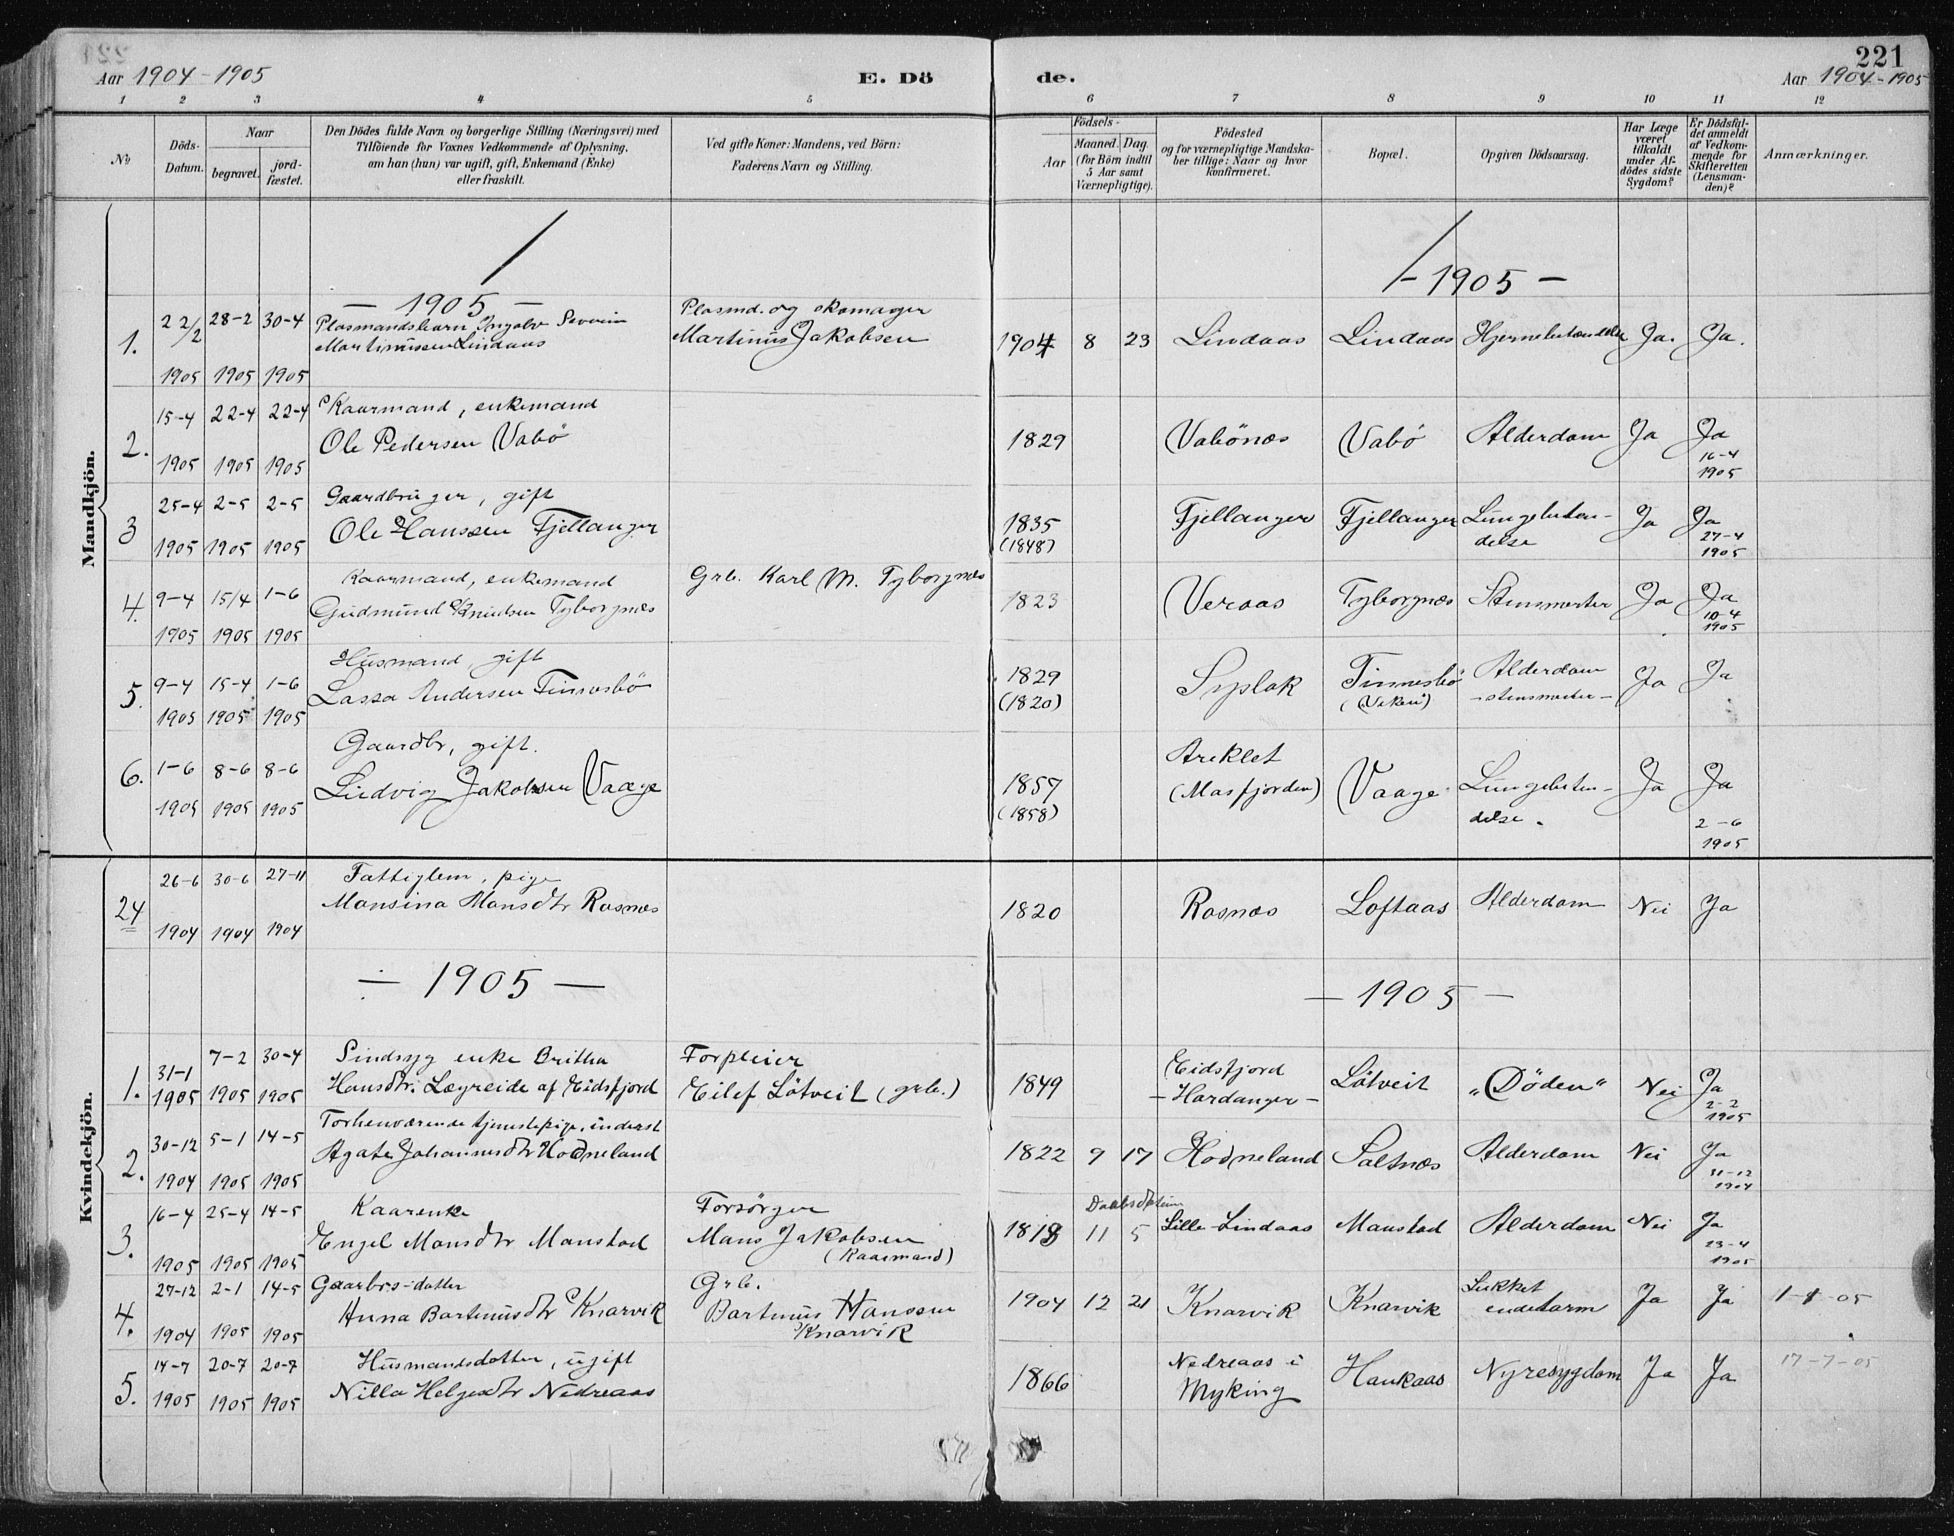 221
Aar 1904-1905
E. Dö
de.
Aar 1904-1905
1 2 3 4 5 6 7 8 9 10 11 12
No
Döds-
Datum.
Naar
begravet.
jord-
fæstet.
Den Dödes fulde Navn og borgerlige Stilling (Næringsvei) med
Tilföiende for Voxnes Vedkommende af Oplysning,
om han (hun) var ugift, gift, Enkemand (Enke)
eller fraskilt.
Ved gifte Koner: Mandens, ved Börn:
Faderens Navn og Stilling.
Födsels-
Aar
Maaned. Dag.
(for Börn indtil
5 Aar samt
Værnepligtige).
Födested
og for værnepligtige Mandska-
ber tillige: Naar og hvor
konfirmeret.
Bopæl.
Opgiven Dödsaarsag.
Har Læge
været
tilkaldt
under Af-
dödes sidste
Sygdom?
Er Dödsfal-
det anmeldt
af Vedkom-
mende for
Skifteretten
(Lensman-
den)?
Anmærkninger.
Mandkjön.
— 1905 —
- 1905 -
1. 22/2 1905 28-2 1905 30-4 1905
Plasmandsbarn Ingolv Severin
Martinussen Lindaas
Plasmd. og skomager
Martinus Jakobsen
1904 8 23 Lindaas Lindaas Hjernebetændelse Ja. Ja.
2. 15-4 1905 22-4 1905 22-4 1905
Kaarmand, enkemand
Ole Pedersen Vabö
1829 Vabönæs Vabö Alderdom Ja Ja
16-4
1905
3 25-4 1905 2-5 1905 2-5 1905
Gaardbruger, gift
Ole Hanssen Fjellanger
1835
(1848)
Fjellanger Fjellanger Lungebeten-
delse
Ja Ja
27-4
1905
4. 9-4 1905 15/4 1905 1-6 1905
Kaarmand, enkemand
Gudmund Knudsen Tyborgnæs
Grb. Karl M. Tyborgnæs
1823 Veraas Tyborgnæs Stensmerter Ja Ja
10-4
1905
5. 9-4 1905 15-4 1905 1-6 1905
Husmand, gift
Lassa Andersen Tinnesbö
1829
(1820)
Syslak Tinnesbö
Alderdom
-stensmerter-
Ja Ja
6. 1-6 1905 8-6 1905 8-6 1905
Gaardbr, gift.
Ludvig Jakobsen Vaage
1857
(1858)
Areklet
(Masfjorden)
Vaage Lungebeten-
delse.
Ja Ja
2-6
1905
Kvindekjön.
24 26-6 1904 30-6 1904 27-11 1904
Fattiglem, pige
Monsina Monsdtr Rosnæs
1820 Rosnæs Loftaas Alderdom Nei Ja
— 1905 —
— 1905 —
1. 31-1 1905 7-2 1905 30-4 1905
Sindsyg enke Britha
Hansdtr. Lægreide af Eidsfjord
Forpleier
Eilef Lötveit (grb.)
1849 Eidsfjord
- Hardanger -
Lötveit "Döden" Nei Ja
2-2
1905
2. 30-12 1904 5-1 1905 14-5 1905
Forhenværende tjenestepige, inderst
Agate Johannesdtr Hodneland
1822 9 17 Hodneland Saltnæs Alderdom Nei Ja
31-12
1904
3. 16-4 1905 25-4 1905 14-5 1905
Kaarenke
Engel Monsdtr Monstad
Forsörger
Mons Jakobsen
(Kaarmand)
1819 11 5 Lille-Lindaas Monstad Alderdom Nei Ja
23-4
1905
4. 27-12 1904 2-1 1905 14-5 1905
Gaarbrs-datter
Anna Bartinusdtr Knarvik
Grb.
Bartinus Hanssen
Knarvik
1904 12 21 Knarvik Knarvik Lukket
endetarm
Ja Ja 1-1-05
5. 14-7 1905 20-7 1905 20-7 1905
Husmandsdatter, ugift
Nilla Helgesdtr Nedreaas
1866 Nedreaas i
Myking
Haukaas Nyresygdom Ja Ja 17-7-05